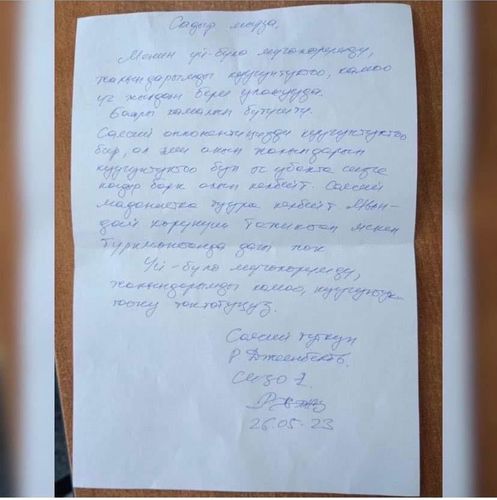 Садыр мырза.
Менин үй-бүлө мүчөлөрүмдү,
жакындарымды куугунтуктоо, камоо
үч жылдан бери уланууда.
Баары камалып бүтүптү.
Саясий оппонентиңизди куугунтуктоо
бир, ал эми анын жакындарын
куугунтуктоо бул эч убакта сизге
кадыр барк алып келбейт. Саясий
маданиятка туура келбейт. Мын-
дай көрүнүш Тажикстан менен
Туркмөнстанда дагы жок
Үй-бүлө мүчөлөрүмдү,
жакындарымды камоо, куугунтук-
тоону токтотуңуз.
Саясий туткун
Р. Джеенбеков.
СИЗО 1.
26.05.23